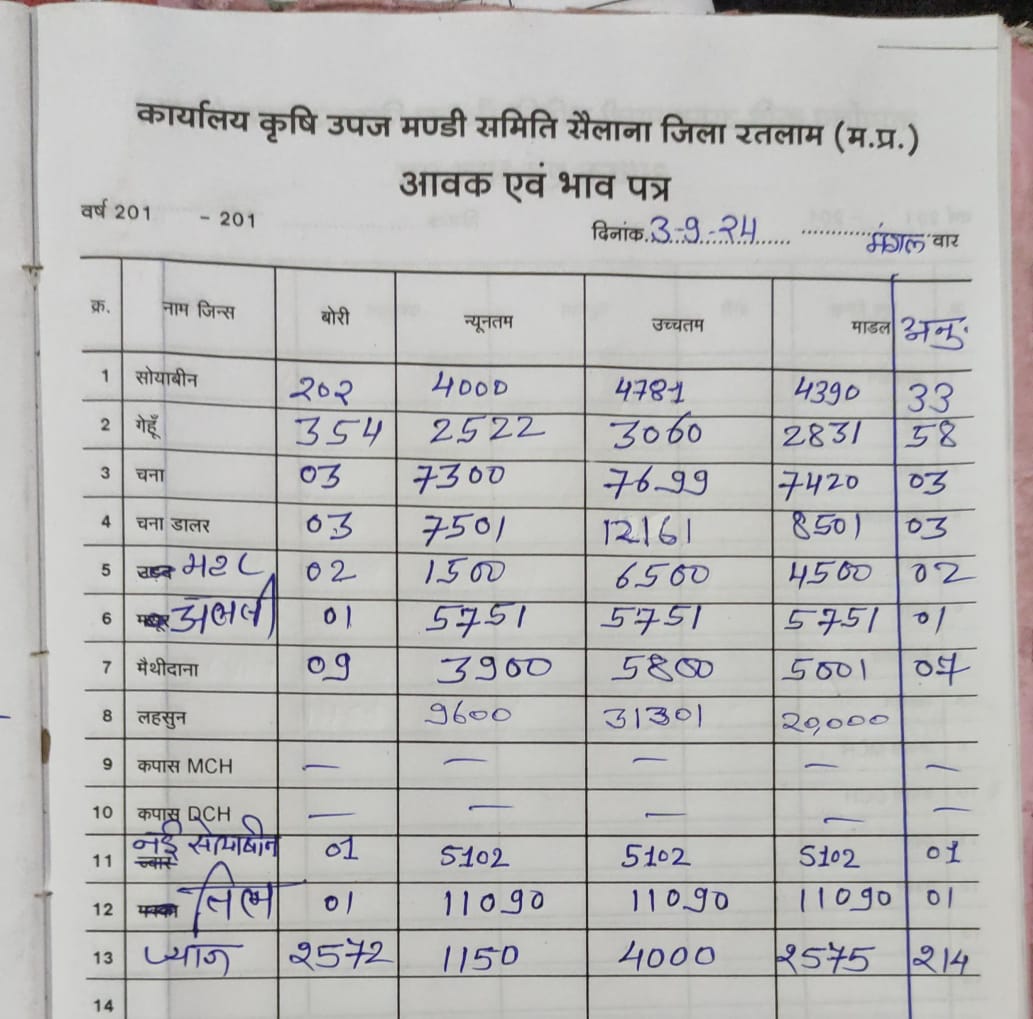 कार्यालय कृषि उपज मण्डी समिति सैलाना जिला रतलाम (म.प्र.)
आवक एवं भाव पत्र
वर्ष 201 - 201 दिनांक 3-9-24 मंगल वार
क्र. नाम जिन्स बोरी न्यूनतम उच्चतम माडल अनु.
1 सोयाबीन २०२ 4000 4781 4390 33
2 गेहूँ 354 2522 3060 2831 58
3 चना 03 7300 7699 7420 03
4 चना डालर 03 7501 12161 8501 03
5 उड़द मटर 02 1500 6500 4500 02
6 मसूर अलसी 01 5751 5751 5751 01
7 मैथीदाना 09 3900 5800 5001 07
8 लहसुन 9600 31301 20,000
9 कपास MCH — — — — —
10 कपास DCH — — — — —
11 ज्वार नई सोयाबीन 01 5102 5102 5102 01
12 मक्का तिल 01 11090 11090 11090 01
13 प्याज २572 1150 4000 २575 २14
14